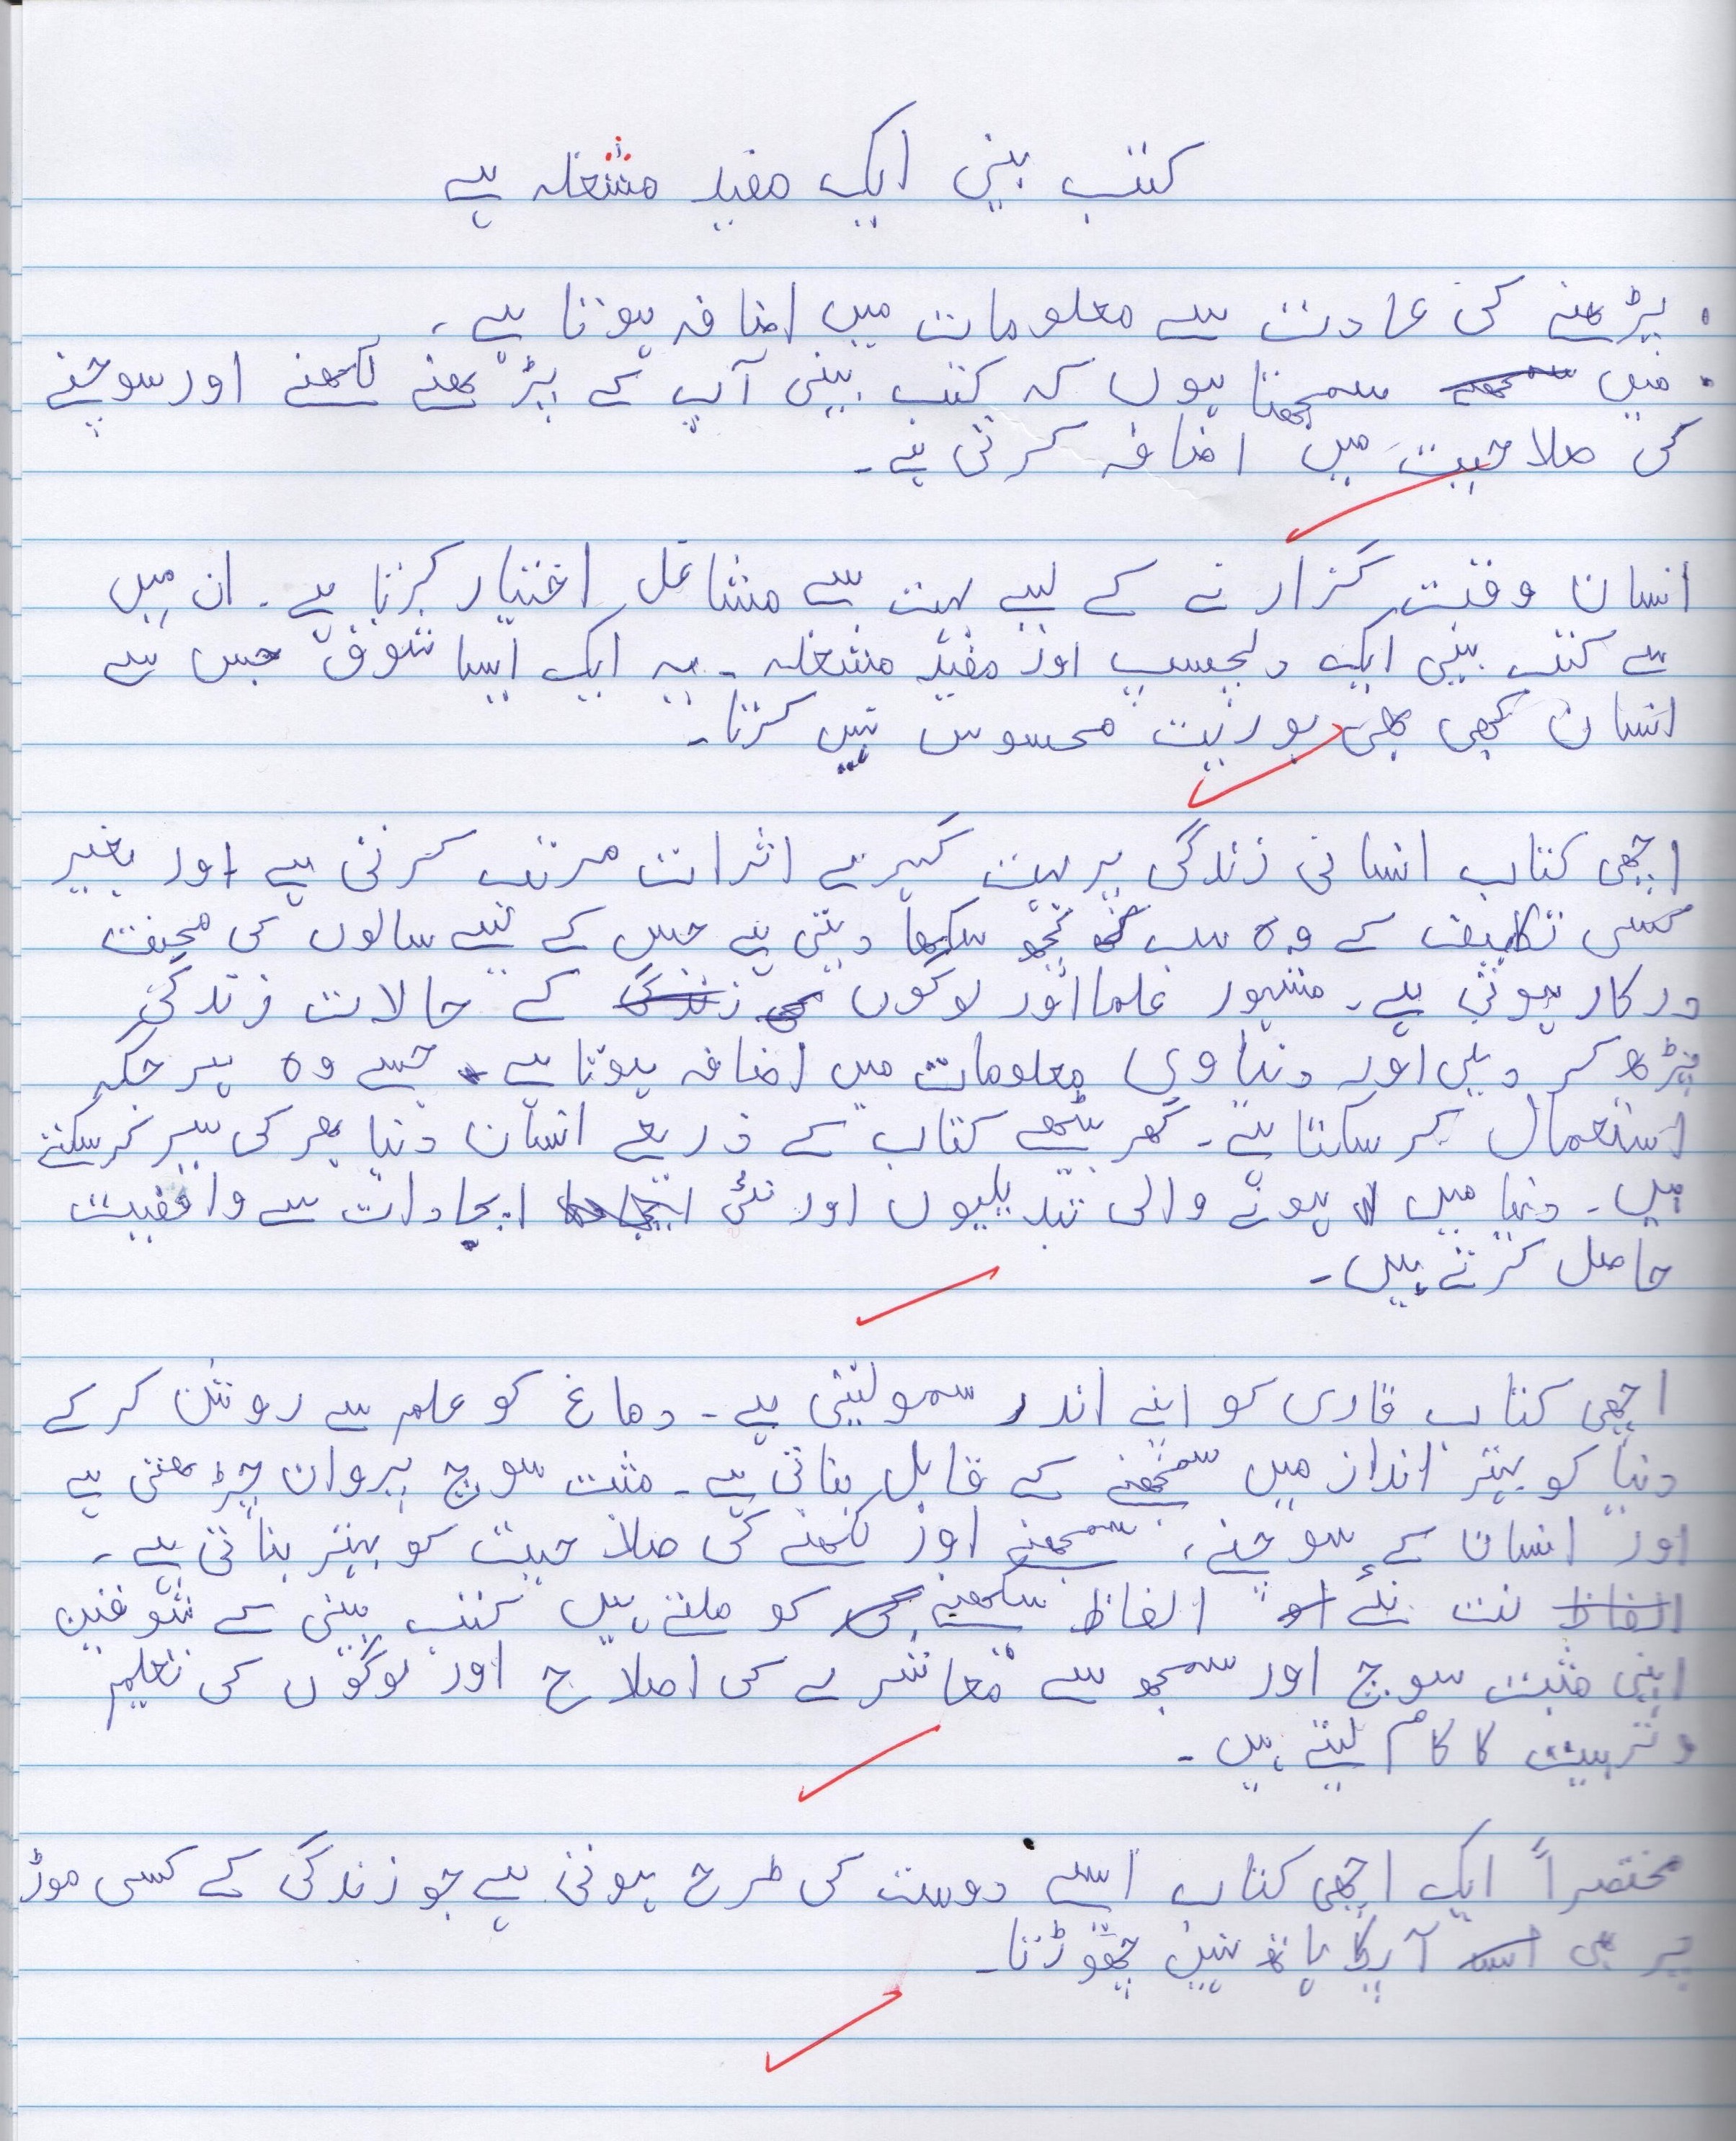 کتب بینی ایک مفید مشغلہ ہے
. پڑھنے کی عادت سے معلومات میں اضافہ ہوتا ہے۔
. میں سمجھتا ہوں کہ کتب بینی آپ کے پڑھنے لکھنے اور سوچنے
کی صلاحیت میں اضافہ کرتی ہے۔
انسان وقت گزارنے کے لیے بہت سے مشاغل اختیار کرتا ہے۔ ان میں
سے کتب بینی ایک دلچسپ اور مفید مشغلہ ۔ یہ ایک ایسا شوق جس سے
انسان کبھی بھی بوریت محسوس نہیں کرتا۔
اچھی کتاب انسانی زندگی پر بہت گہرے اثرات مرتب کرتی ہے اور بغیر
کسی تکلیف کے وہ سب کچھ سکھا دیتی ہے جس کے لیے سالوں کی محنت
درکار ہوتی ہے۔ مشہور علما اور لوگوں کے حالات زندگی
پڑھ کر دینی اور دنیاوی معلومات میں اضافہ ہوتا ہے۔ جسے وہ ہر جگہ
استعمال کر سکتا ہے۔ گھر بیٹھے کتاب کے ذریعے انسان دنیا بھر کی سیر کر سکتے
ہیں۔ دنیا میں ہونے والی تبدیلیوں اور نئی ایجادات سے واقفیت
حاصل کرتے ہیں۔
اچھی کتاب قاری کو اپنے اندر سمو لیتی ہے۔ دماغ کو علم سے روشن کر کے
دنیا کو بہتر انداز میں سمجھنے کے قابل بناتی ہے۔ مثبت سوچ پروان چڑھتی ہے
اور انسان کے سوچنے، سمجھنے اور لکھنے کی صلاحیت کو بہتر بناتی ہے۔
نت نئے الفاظ سیکھنے کو ملتے ہیں کتب بینی کے شوقین
اپنی مثبت سوچ اور سمجھ سے معاشرے کی اصلاح اور لوگوں کی تعلیم
و تربیت کا کام لیتے ہیں۔
مختصراً ایک اچھی کتاب ایسے دوست کی طرح ہوتی ہے جو زندگی کے کسی موڑ
پر بھی آپکا ہاتھ نہیں چھوڑتا۔